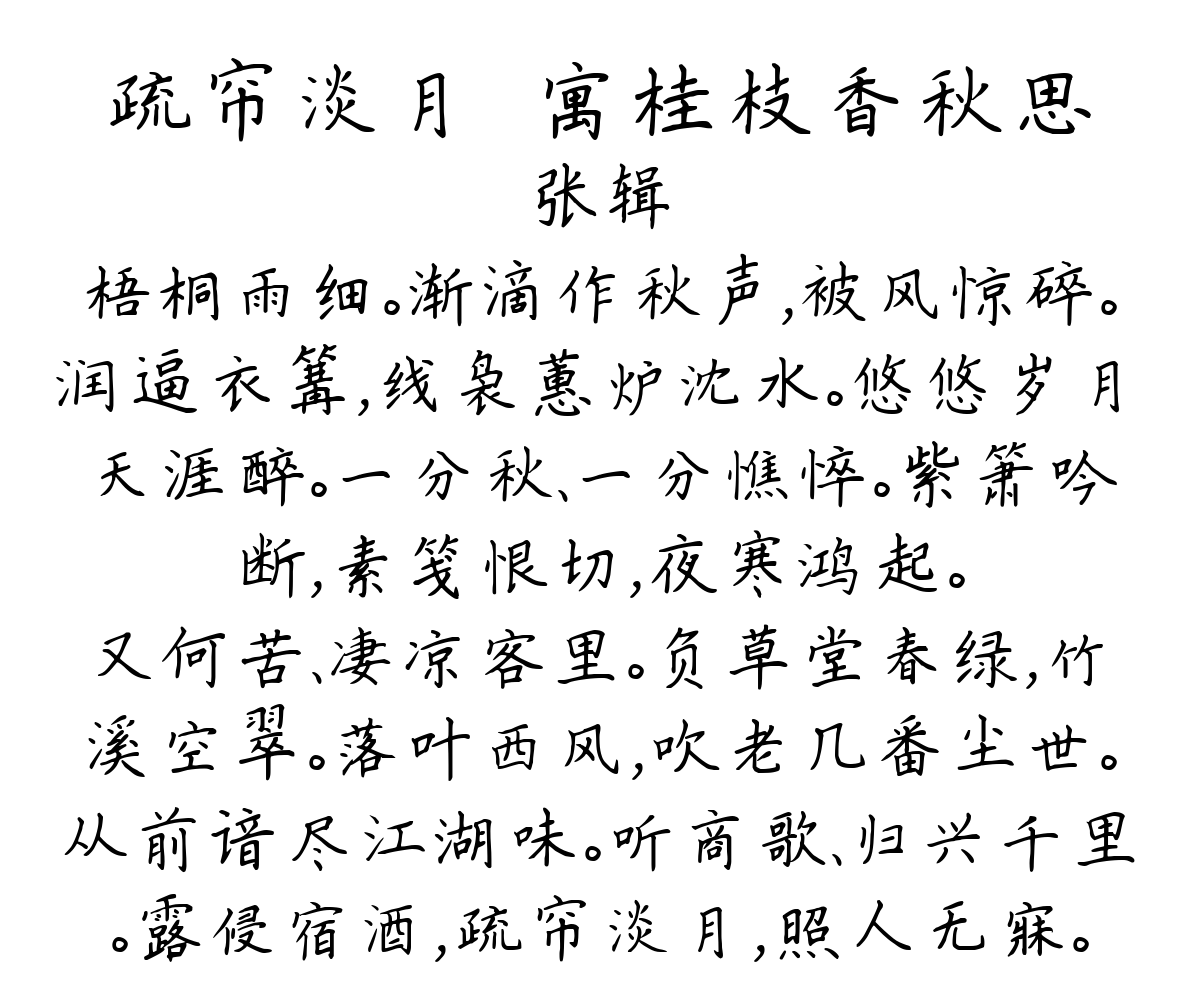 疏帘淡月 寓桂枝香秋思
张辑
梧桐雨细。渐滴作秋声,被风惊碎。
润逼衣篝,线袅蕙炉沈水。悠悠岁月
天涯醉。一分秋、一分憔悴。紫箫吟
断,素笺恨切,夜寒鸿起。
又何苦、凄凉客里。负草堂春绿,竹
溪空翠。落叶西风,吹老几番尘世。
从前谙尽江湖味。听商歌、归兴千里
。露侵宿酒,疏帘淡月,照人无寐。